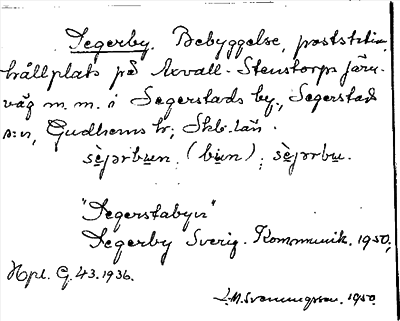 Segerby. Bebyggelse, poststation,
hållplats på Axvall-Stenstorps järn-
väg m.m. i Segerstads by, Segerstads
s:n, Gudhems hr; Skb. län.
sèjərbʉn (bʉn); sèjərbu.
"Segerstabyn"
Segerby Sverig. Kommunik. 1950,
Hpl. G. 43. 1936.
J.M. Svenningsson. 1950.